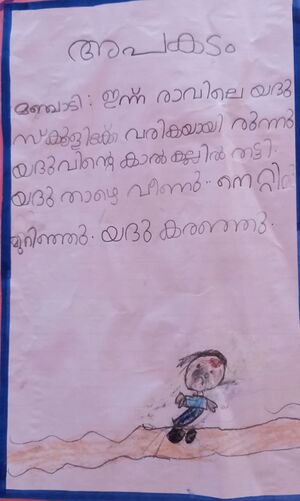 അപകടം
മഞ്ചാടി: ഇന്ന് രാവിലെ യദു
സ്കൂളിലേക്ക് വരികയായി രുന്നു
യദുവിന്റെ കാൽ കല്ലിൽ തട്ടി.
യദു താഴെ വീണു.. നെറ്റി
മുറിഞ്ഞു. യദു കരഞ്ഞു.